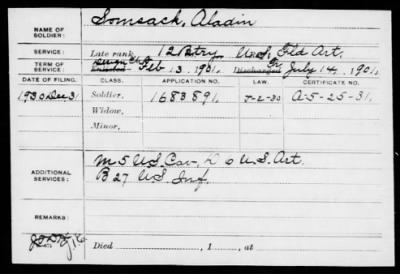 NAME OF SOLDIER: Somsack, Aladin
SERVICE: Late rank, 12 Btry, U.S. Fld Art.
TERM OF SERVICE: Enlisted Feb 13, 1901, Discharged July 14, 1901,
DATE OF FILING. CLASS. APPLICATION NO. LAW. CERTIFICATE NO.
1930 Dec 31 Soldier, 1683891 A-5-25-31.
Widow,
Minor,
ADDITIONAL SERVICES: M 5 U.S. Cav, L 6 U.S. Art.
B 27 U.S. Inf.
REMARKS:
Died , 1 , at